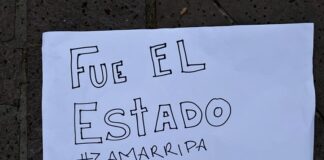 FUE EL
ESTADO
#ZAMARRIPA